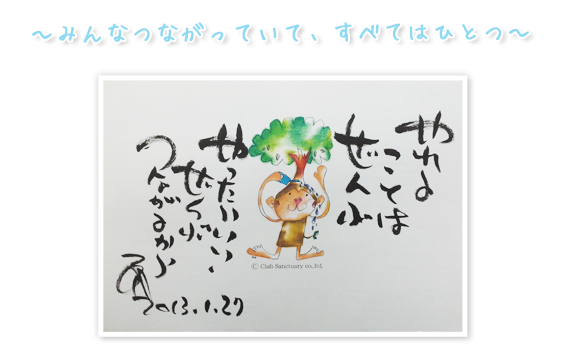 ～みんなつながっていて、すべてはひとつ～
やれる
ことは
ぜんぶ
やったらいい
ぜんぶ
つながるから
2013.1.27
© Club Sanctuary co.,ltd.